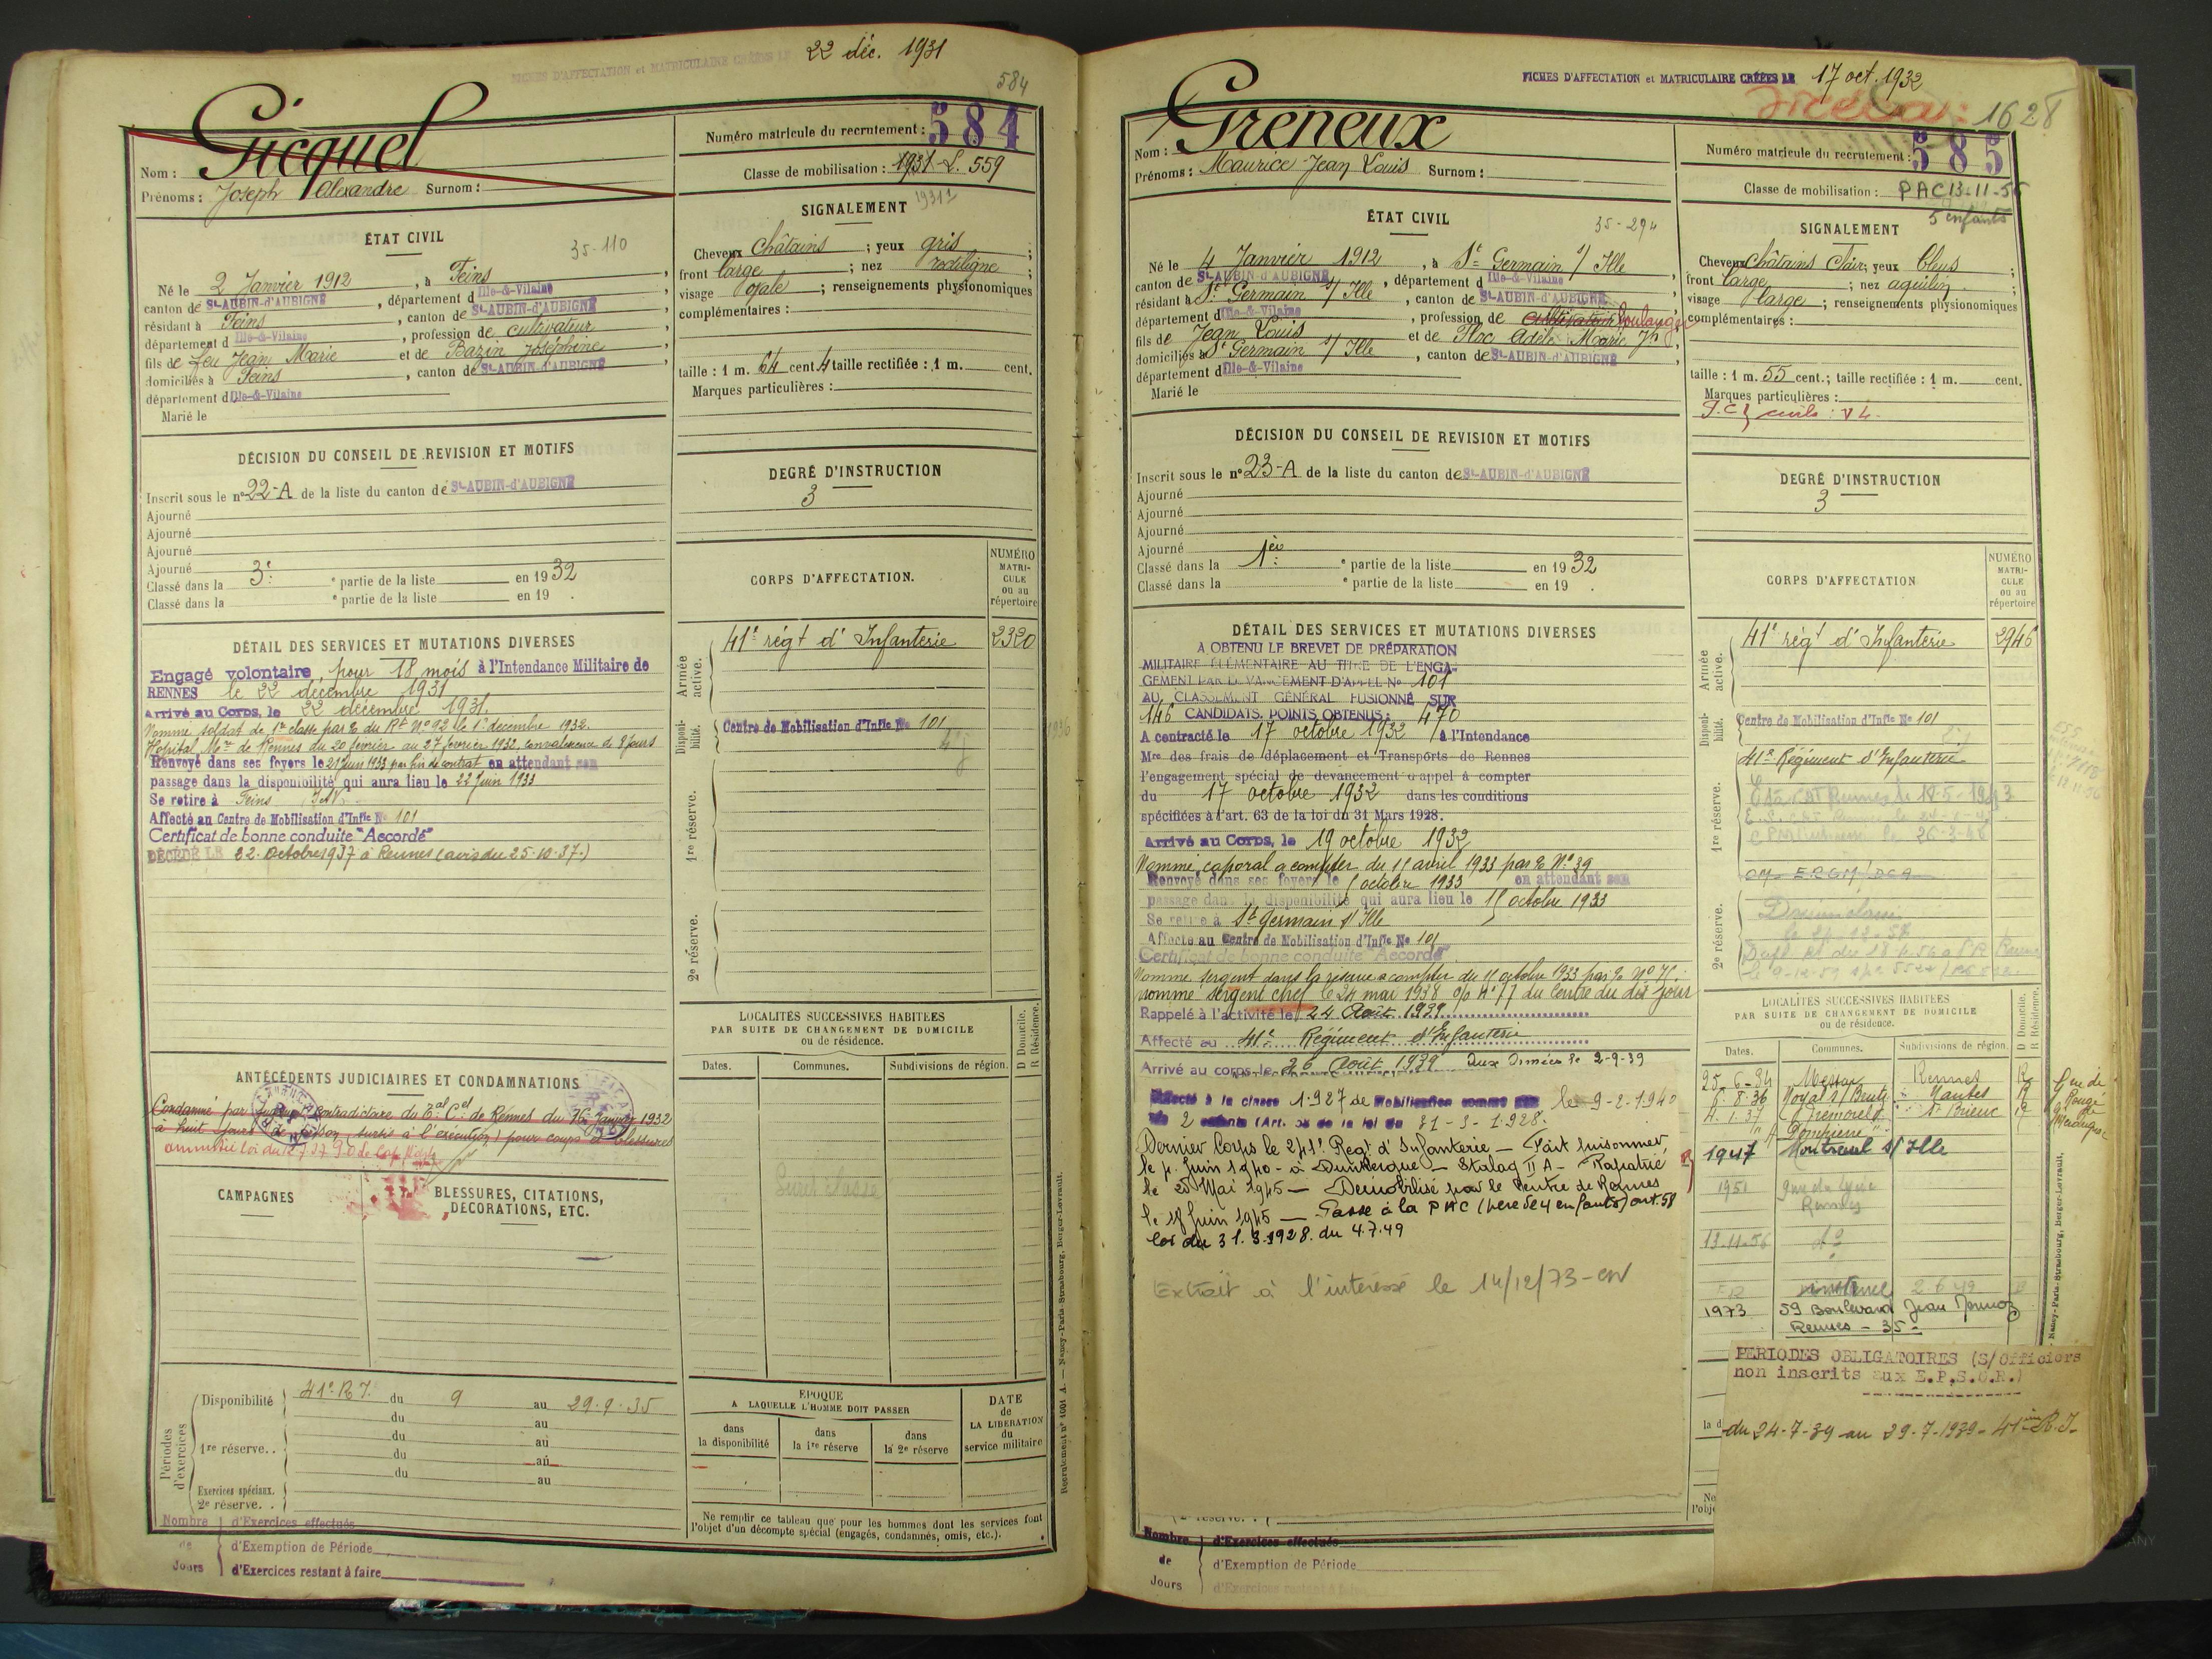 FICHES D'AFFECTATION et MATRICULAIRE CRÉÉES LE 22 déc. 1931
584
Nom : Gicquel
Prénoms : Joseph Alexandre Surnom :
Numéro matricule du recrutement : 584
Classe de mobilisation : 1931-L. 559
ÉTAT CIVIL
35-110
Né le 2 Janvier 1912, à Feins,
canton de St-AUBIN-d'AUBIGNÉ, département d Ille-&-Vilaine
résidant à Feins, canton de St-AUBIN-d'AUBIGNÉ,
département d Ille-&-Vilaine, profession de cultivateur,
fils de feu Jean Marie et de Bazin Joséphine,
domiciliés à Feins, canton de St-AUBIN-d'AUBIGNÉ,
département d Ille-&-Vilaine
Marié le
SIGNALEMENT
Cheveux Châtains ; yeux gris ;
front large ; nez rectiligne ;
visage ovale ; renseignements physionomiques
complémentaires :
taille : 1 m. 64 cent. 4 taille rectifiée : 1 m. cent.
Marques particulières :
DÉCISION DU CONSEIL DE REVISION ET MOTIFS
Inscrit sous le n° 22-A de la liste du canton de St-AUBIN-d'AUBIGNÉ
Ajourné
Ajourné
Ajourné
Ajourné
Classé dans la 3e partie de la liste en 1932
Classé dans la e partie de la liste en 19 .
DEGRÉ D'INSTRUCTION
3
CORPS D'AFFECTATION.
NUMÉRO MATRICULE ou au répertoire
Armée active.
41e régt d'Infanterie 2320
Disponibilité.
Centre de Mobilisation d'Infie No 101
1936
1re réserve.
2e réserve.
DÉTAIL DES SERVICES ET MUTATIONS DIVERSES
Engagé volontaire, pour 18 mois à l'Intendance Militaire de
RENNES le 22 décembre 1931
Arrivé au Corps, le 22 décembre 1931.
Nommé soldat de 1re classe par O du Rt No 92 le 1er décembre 1932.
Hôpital Mre de Rennes du 20 février au 27 février 1932, convalescence de 8 jours
Renvoyé dans ses foyers le 21 Juin 1933 par fin de contrat en attendant son
passage dans la disponibilité qui aura lieu le 22 Juin 1933
Se retire à Feins I&V
Affecté au Centre de Mobilisation d'Infie No 101
Certificat de bonne conduite "Accordé"
DÉCÉDÉ LE 22 octobre 1937 à Rennes (avis du 25-10-37)
ANTÉCÉDENTS JUDICIAIRES ET CONDAMNATIONS
Condamné par jugement contradictoire du Tal Cel de Rennes du 16 Janvier 1932
à huit jours de prison, sursis à l'exécution) pour coups et blessures
amnistié loi du 12-7-37
CAMPAGNES
BLESSURES, CITATIONS,
DÉCORATIONS, ETC.
LOCALITÉS SUCCESSIVES HABITÉES
PAR SUITE DE CHANGEMENT DE DOMICILE
ou de résidence.
Dates. Communes. Subdivisions de région. D Domicile. R Résidence.
Périodes d'exercices
Disponibilité 41e R.I. du 9 au 29-9-35
du au
1re réserve.. du au
du au
du au
Exercices spéciaux. au
2e réserve. .
ÉPOQUE
A LAQUELLE L'HOMME DOIT PASSER
dans la disponibilité dans la 1re réserve dans la 2e réserve
DATE de LA LIBÉRATION du service militaire
Ne remplir ce tableau que pour les hommes dont les services font
l'objet d'un décompte spécial (engagés, condamnés, omis, etc.).
Nombre de Jours
d'Exercices effectués
d'Exemption de Période
d'Exercices restant à faire
Recrutement n° 1001 A. — Nancy-Paris-Strasbourg, Berger-Levrault.
FICHES D'AFFECTATION et MATRICULAIRE CRÉÉES LE 17 oct. 1932
1628
Nom : Greneux
Prénoms : Maurice Jean Louis Surnom :
Numéro matricule du recrutement : 585
Classe de mobilisation : PAC 13-11-56
5 enfants
ÉTAT CIVIL
35-294
Né le 4 Janvier 1912, à St Germain s/ Ille,
canton de St-AUBIN-d'AUBIGNÉ, département d Ille-&-Vilaine
résidant à St Germain s/ Ille, canton de St-AUBIN-d'AUBIGNÉ,
département d Ille-&-Vilaine, profession de cultivateur boulanger
fils de Jean Louis et de Floc Adèle Marie Jh,
domiciliés à St Germain s/ Ille, canton de St-AUBIN-d'AUBIGNÉ,
département d Ille-&-Vilaine
Marié le
SIGNALEMENT
Cheveux Châtains clair ; yeux bleus ;
front large ; nez aquilin ;
visage large ; renseignements physionomiques
complémentaires :
taille : 1 m. 55 cent. ; taille rectifiée : 1 m. cent.
Marques particulières :
civils : VL.
DÉCISION DU CONSEIL DE REVISION ET MOTIFS
Inscrit sous le n° 23-A de la liste du canton de St-AUBIN-d'AUBIGNÉ
Ajourné
Ajourné
Ajourné
Ajourné
Classé dans la 1ère partie de la liste en 1932
Classé dans la e partie de la liste en 19 .
DEGRÉ D'INSTRUCTION
3
CORPS D'AFFECTATION
NUMÉRO MATRICULE ou au répertoire
Armée active.
41e régt d'Infanterie 2946
Disponibilité.
Centre de Mobilisation d'Infie No 101
1re réserve.
41e Régiment d'Infanterie
2e réserve.
DÉTAIL DES SERVICES ET MUTATIONS DIVERSES
A OBTENU LE BREVET DE PRÉPARATION
MILITAIRE ÉLÉMENTAIRE AU TITRE DE L'ENGA-
GEMENT PAR DEVANCEMENT D'APPEL No 101
AU CLASSEMENT GÉNÉRAL FUSIONNÉ SUR
146 CANDIDATS. POINTS OBTENUS : 470
A contracté le 17 octobre 1932 à l'Intendance
Mre des frais de déplacement et Transports de Rennes
l'engagement spécial de devancement d'appel à compter
du 17 octobre 1932 dans les conditions
spécifiées à l'art. 63 de la loi du 31 Mars 1928.
Arrivé au Corps, le 19 octobre 1932
Nommé caporal à compter du 11 avril 1933 par O No 39
Renvoyé dans ses foyers le octobre 1933 en attendant son
passage dans la disponibilité qui aura lieu le 11 octobre 1933
Se retire à St Germain s/ Ille
Affecté au Centre de Mobilisation d'Infie No 101
Certificat de bonne conduite "Accordé"
Nommé sergent dans la réserve à compter du 11 octobre 1933 par O No
nommé sergent chef le 24 mai 1938 O/ No 17 du Centre du dit jour
Rappelé à l'activité le 24 Août 1939
Affecté au 41e Régiment d'Infanterie
Arrivé au corps le 26 Août 1939 Aux Armées le 2-9-39
Affecté à la classe 1927 de Mobilisation comme père le 9-2-1940
de 2 enfants (Art. 58 de la loi du 31-3-1928.
Dernier Corps le 241e Regt d'Infanterie — Fait prisonnier
le 4 Juin 1940 - à Dunkerque — Stalag II A — Rapatrié
le 20 Mai 1945 — Démobilisé par le Centre de Rennes
le 18 Juin 1945 — Passe à la PAC (père de 4 enfants) art. 58
loi du 31.3.1928. du 4.7.49
Extrait à l'intéressé le 14/12/73
LOCALITÉS SUCCESSIVES HABITÉES
PAR SUITE DE CHANGEMENT DE DOMICILE
ou de résidence.
Dates. Communes. Subdivisions de région. D Domicile. R Résidence.
25-6-34 Messac Rennes R
5.8.36 Noyal s/ Brutz Nantes R
4.1.37 Trémorel St Brieuc R
1947 Montreuil s/ Ille
1951 Rennes
13-11-56 do
1973 59 Boulevard Jean Mermoz
Rennes - 35 -
PERIODES OBLIGATOIRES (S/Officiers
non inscrits aux E.P.S.O.R.)
du 24-7-39 au 29-7-1939 - 41ème R.I.
Nombre de Jours
d'Exercices effectués
d'Exemption de Période
d'Exercices restant à faire
Nancy-Paris-Strasbourg, Berger-Levrault.